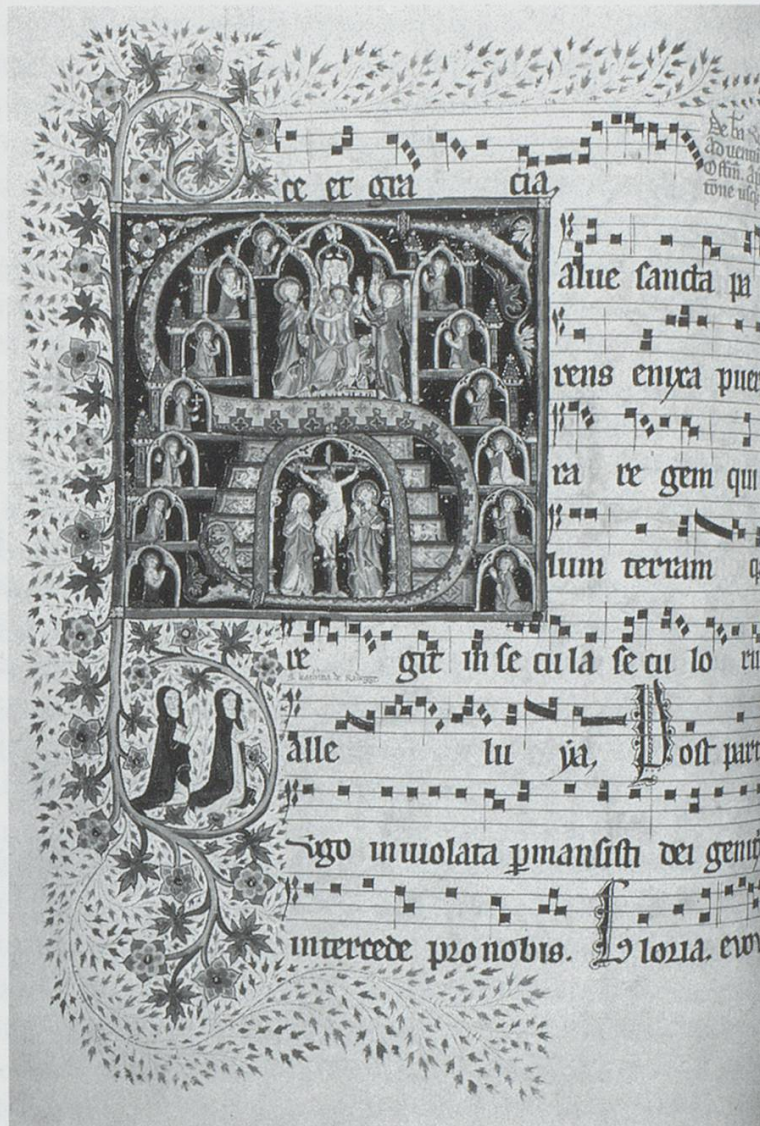 ce et gra cia,
De bn
ad uenm
Ostm. a
tone usq
alue sancta pa
rens enixa puer
ra re gem qui
lum terram q
re git in se cu la se cu lo ru
alle lu ya, Post part
uigo inuiolata pmansisti dei genit
intercede pro nobis. Gloria. euou